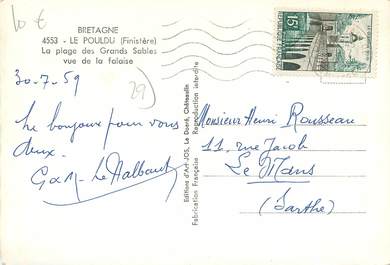 10 €
BRETAGNE
4553 - LE POULDU (Finistère)
La plage des Grands Sables
vue de la falaise
30-7-59
29
Le bonjour pour vous
deux.
G et M. Le Halbaut
Editions d'Art JOS, Le Doaré, Châteaulin
Fabrication Française - Reproduction interdite
15F
REPUBLIQUE FRANÇAISE
Monsieur Henri Rousseau
11, rue Jacob
Le Mans
(Sarthe)